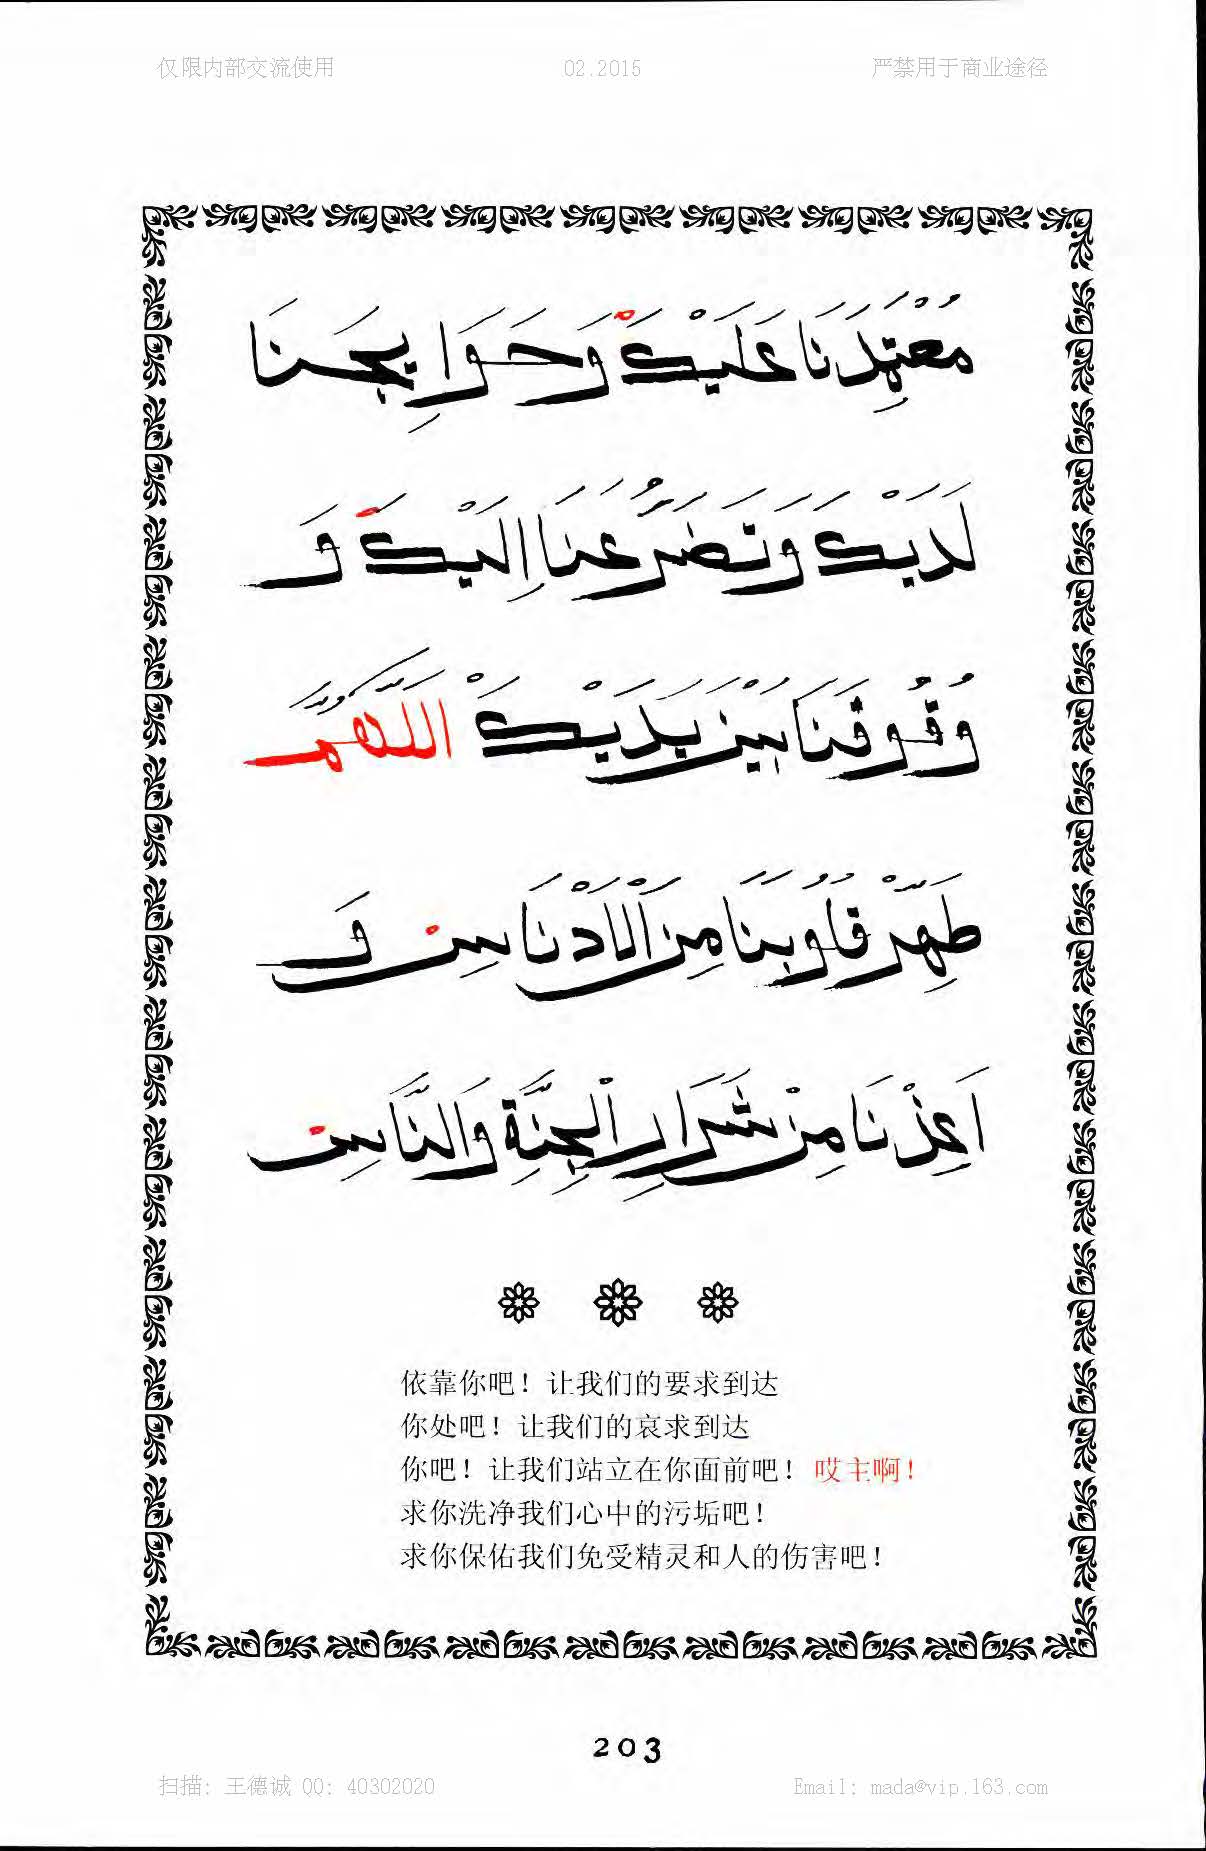 仅限内部交流使用 02.2015 严禁用于商业途径
مُعْتَمِدَنَا عَلَيْكَ وَحَوَايِجَنَا
لَدَيْكَ وَتَضَرُّعَنَا اِلَيْكَ وَ
وُقُوفَنَا بَيْنَ يَدَيْكَ اَللّٰهُمَّ
طَهِّرْ قُلُوبَنَا مِنَ الْاَدْنَاسِ وَ
اَعِذْنَا مِنْ شَرَارِ الْجِنَّةِ وَالنَّاسِ
依靠你吧！让我们的要求到达
你处吧！让我们的哀求到达
你吧！让我们站立在你面前吧！哎主啊！
求你洗净我们心中的污垢吧！
求你保佑我们免受精灵和人的伤害吧！
203
扫描: 王德诚 QQ: 40302020 Email: mada@vip.163.com